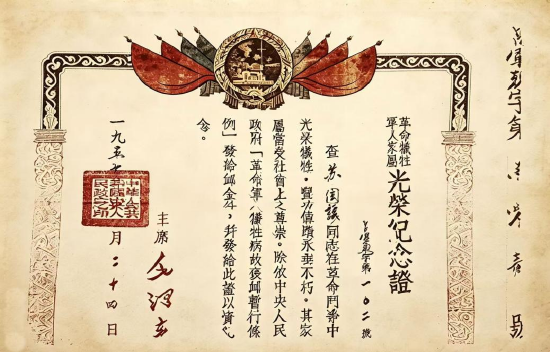 革命犧牲
軍人家屬
光榮紀念證
字第一〇二號
查苏同志在革命鬥爭中
光榮犧牲,豐功偉績永垂不朽。其家
屬當受社會上之尊崇。除依中央人民
政府「革命軍人犧牲病故褒卹暫行條
例」發給卹金外,并發給此證以資紀
念。
主席
毛澤東
一九五 月二十四日
中華人民
共和國中央人
民政府之印